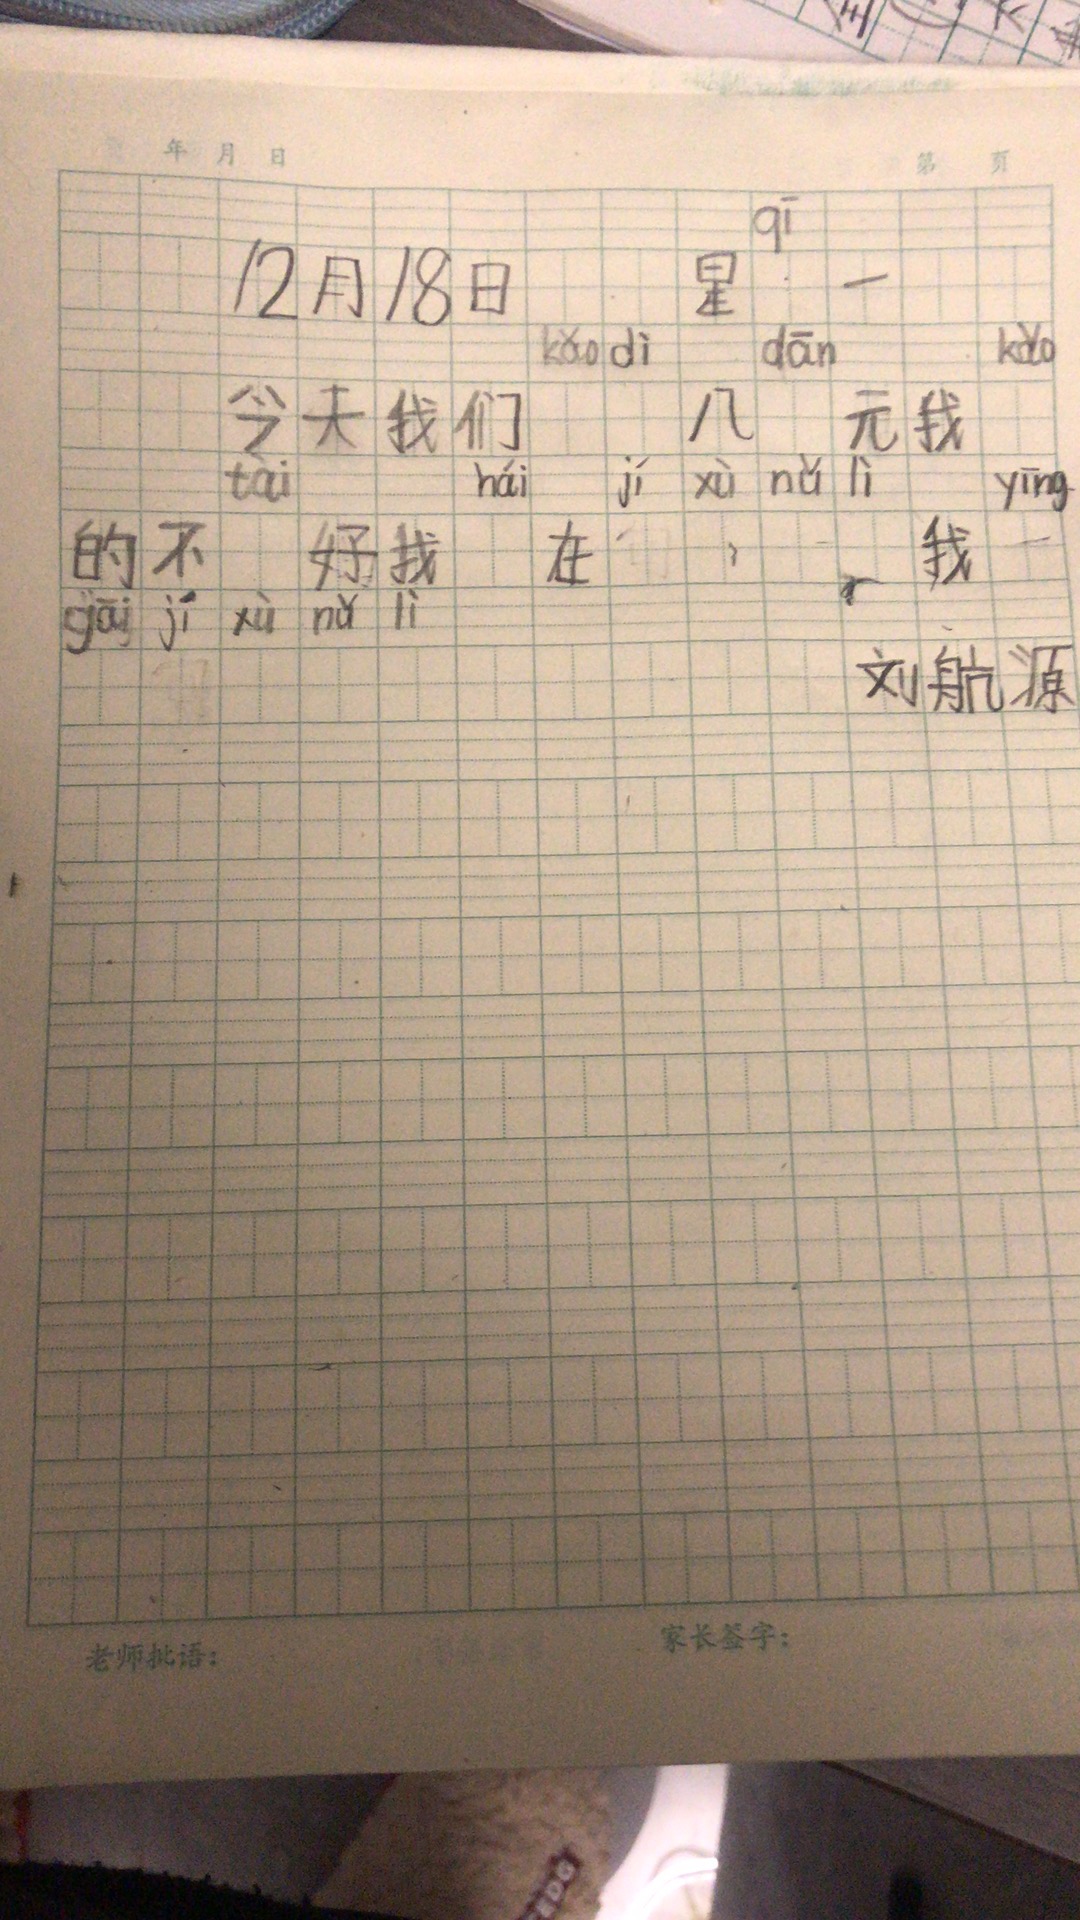 年 月 日 第 页
qī
12月18日 星 一
kǎo dì dān kǎo
今天我们 八 元我
tài hái jí xù nǔ lì yīng
的不 好我 在 我
gāi jí xù nǔ lì
刘航源
老师批语: 家长签字: